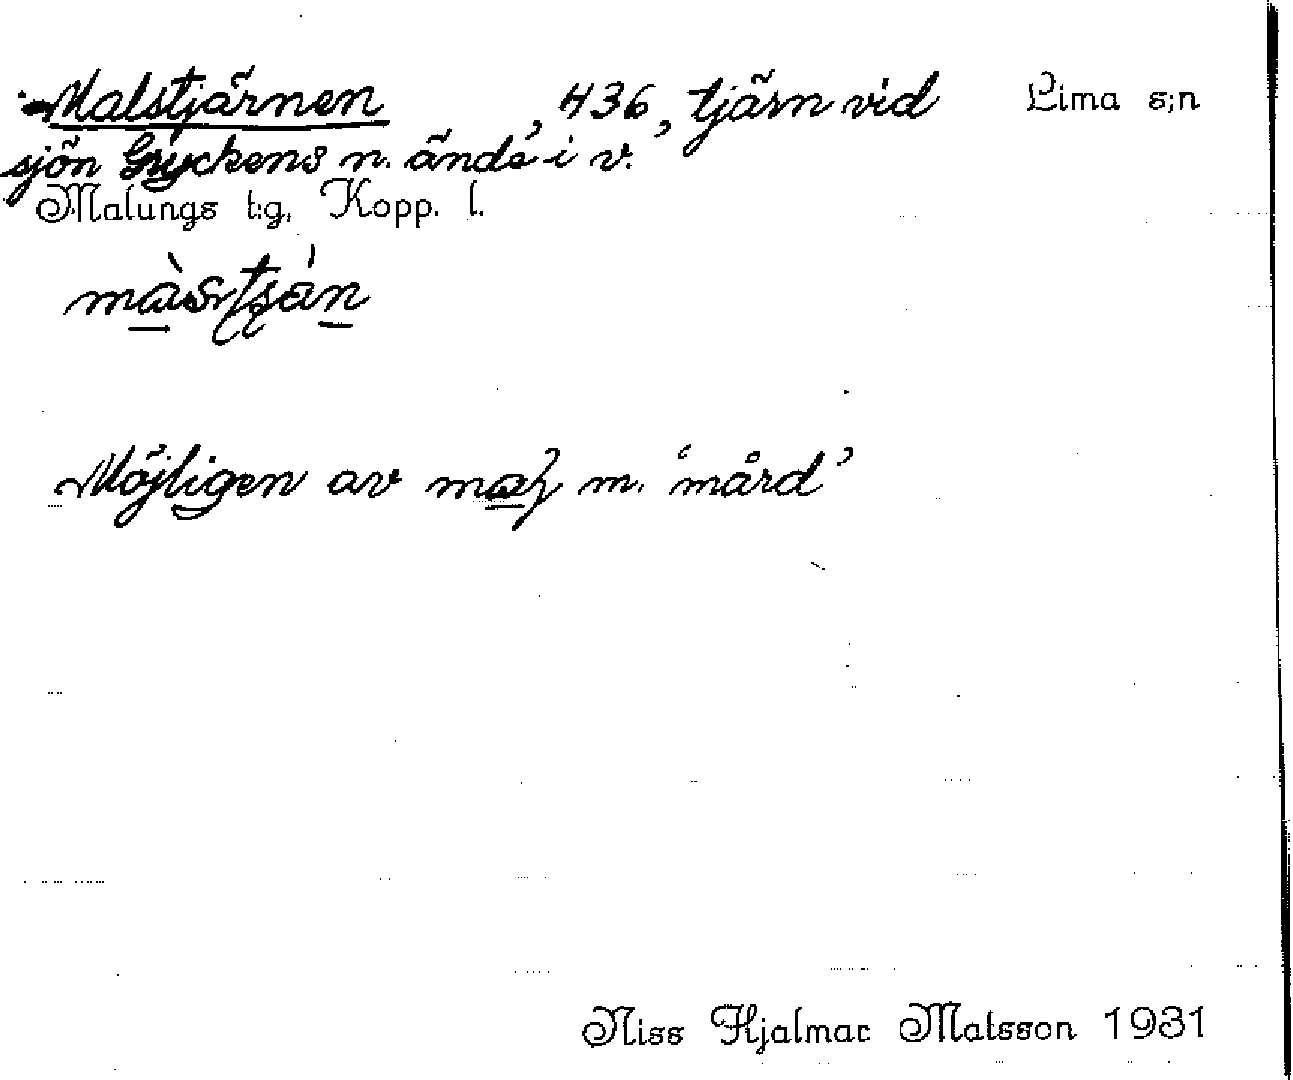 Malstjärnen, 436, tjärn vid Lima s:n
sjön Gryckens n. ände i v.
Malungs t:g, Kopp. l.
Möjligen av m. 'mård'
Niss Hjalmar Matsson 1931